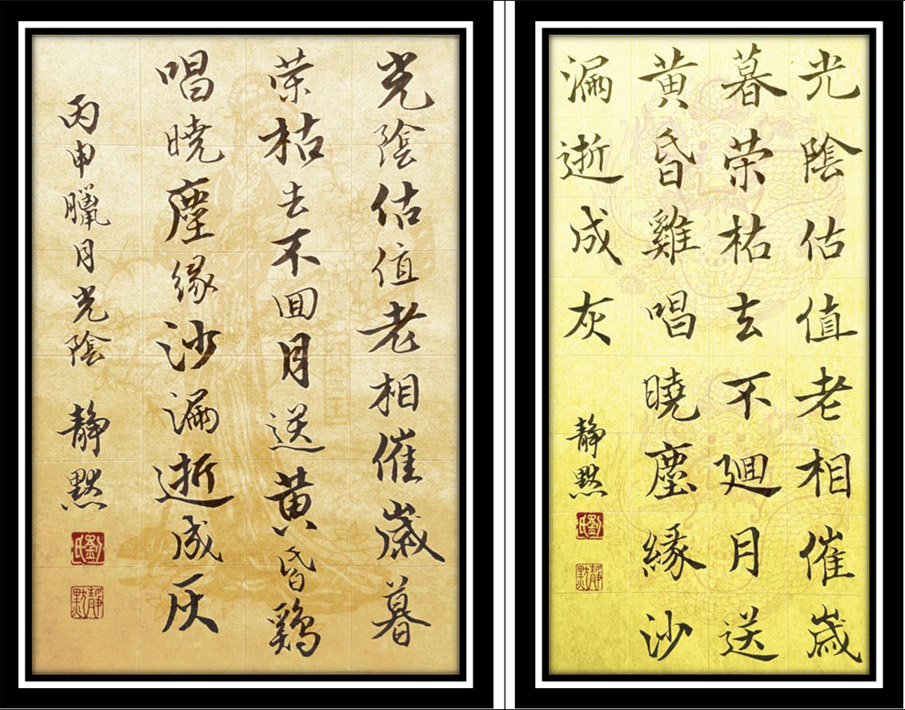 光陰估值老相催歲暮
荣枯去不囬月送黄昏鷄
唱曉塵緣沙漏逝成灰
丙申臘月光陰 静默
劉氏
静默
光陰估值老相催歲
暮荣枯去不廻月送
黄昏雞唱曉塵緣沙
漏逝成灰 静默
劉氏
静默